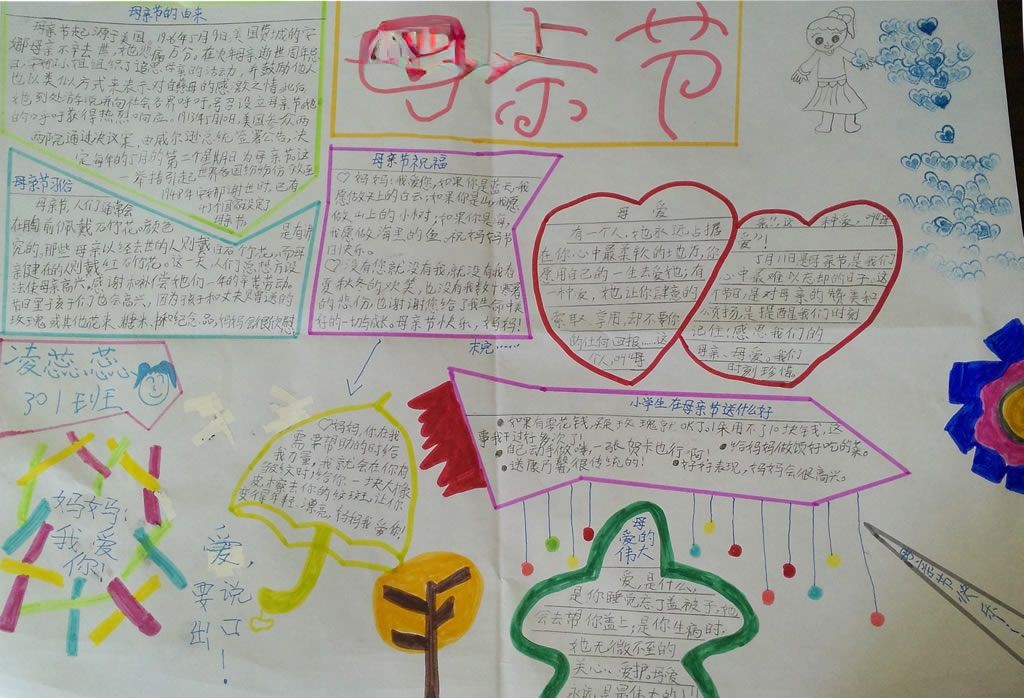 母亲节的由来
母亲节起源于美国。1906年5月9日,美国费城的安
娜母亲不幸去世,她悲痛万分。在次年母亲逝世周年忌
组织了追思母亲的活动,并鼓励他人
也以类似方式来表示对慈母的感激之情。此后
她到处游说并向社会各界呼吁,号召设立母亲节。她
的呼吁获得热烈响应。1913年5月10日,美国参众两
两院通过决议案,由威尔逊总统签署公告,决
定每年的5月的第二个星期日为母亲节。这
一举措引起世界各国纷纷仿效,至
1948年
母亲节
母亲节习俗
母亲节,人们通常会
在胸前佩戴石竹花。颜色是有讲
究的。那些母亲以经去世的人则戴白石竹花。而母
亲健在的人则戴红石竹花。这一天,人们总想方设
法使母亲高兴,感谢和补偿她们一年的辛苦劳动。
节日里孩子们也会高兴,因为孩子和丈夫赠送的
玫瑰或其他花束、糖米、和纪念品,妈妈会很欣慰
母亲节
母亲节祝福
♡妈妈:我爱您,如果你是蓝天,我
愿做天上的白云;如果你是山,我愿
做山上的小树;如果你是海,
我愿做海里的鱼。祝妈妈节
日快乐。
♡没有您就没有我,就没有我在
夏秋冬的欢笑,也没有我数十寒暑
的悲伤,也谢谢您给了我生命中美好
的一切与成长。母亲节快乐,妈妈!
未完……
母爱
有一个人,她永远占据
在你心中最柔软的地方,你
愿用自己的一生去爱他;有
一种爱,她让你肆意的
索取、享用,却不要你
的任何回报……这
个人,叫母
亲!这一种爱,叫母
爱!
5月11日是母亲节,是我们
心中最难以忘却的日子,这
个节日,是对母亲的赞美和
颂扬,是提醒我们时刻
记住:感恩我们的
母亲、母爱。我们
时刻珍惜。
小学生在母亲节送什么好
●如果有零花钱,买支玫瑰就OK了。(采用不了10块钱,这
事我干过好多次了)
●自己动手做嘛,一张贺卡也行啊! ●给妈妈做顿好吃的菜。
●送康乃馨,很传统的! ●好好表现,妈妈会很高兴。
凌蕊蕊
301班
妈妈:
我爱
你!
爱,
要说
出口!
♡妈妈,你在我
需要帮助的时给
我力量,我就会在你有
皱纹时给你一块大橡
皮,擦去你的皱斑,让你
变得年轻、漂亮,妈妈我爱你!
母爱的伟大
爱,是什么,
是你睡觉忘了盖被子,她
会去帮你盖上;是你生病时,
她无微不至的
关心、爱护。母爱
永远是最伟大的!
母亲节快乐……